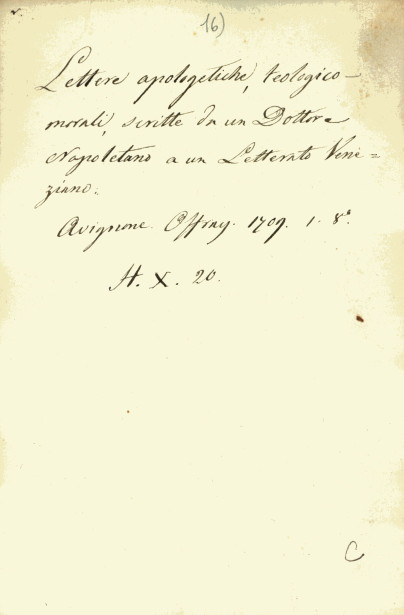 16)
Lettere apologetiche, teologico-
morali, scritte da un Dottore
Napoletano a un Letterato Vene=
ziano.
Avignone. Offray. 1709. 1. 8°.
H. X. 20.
C